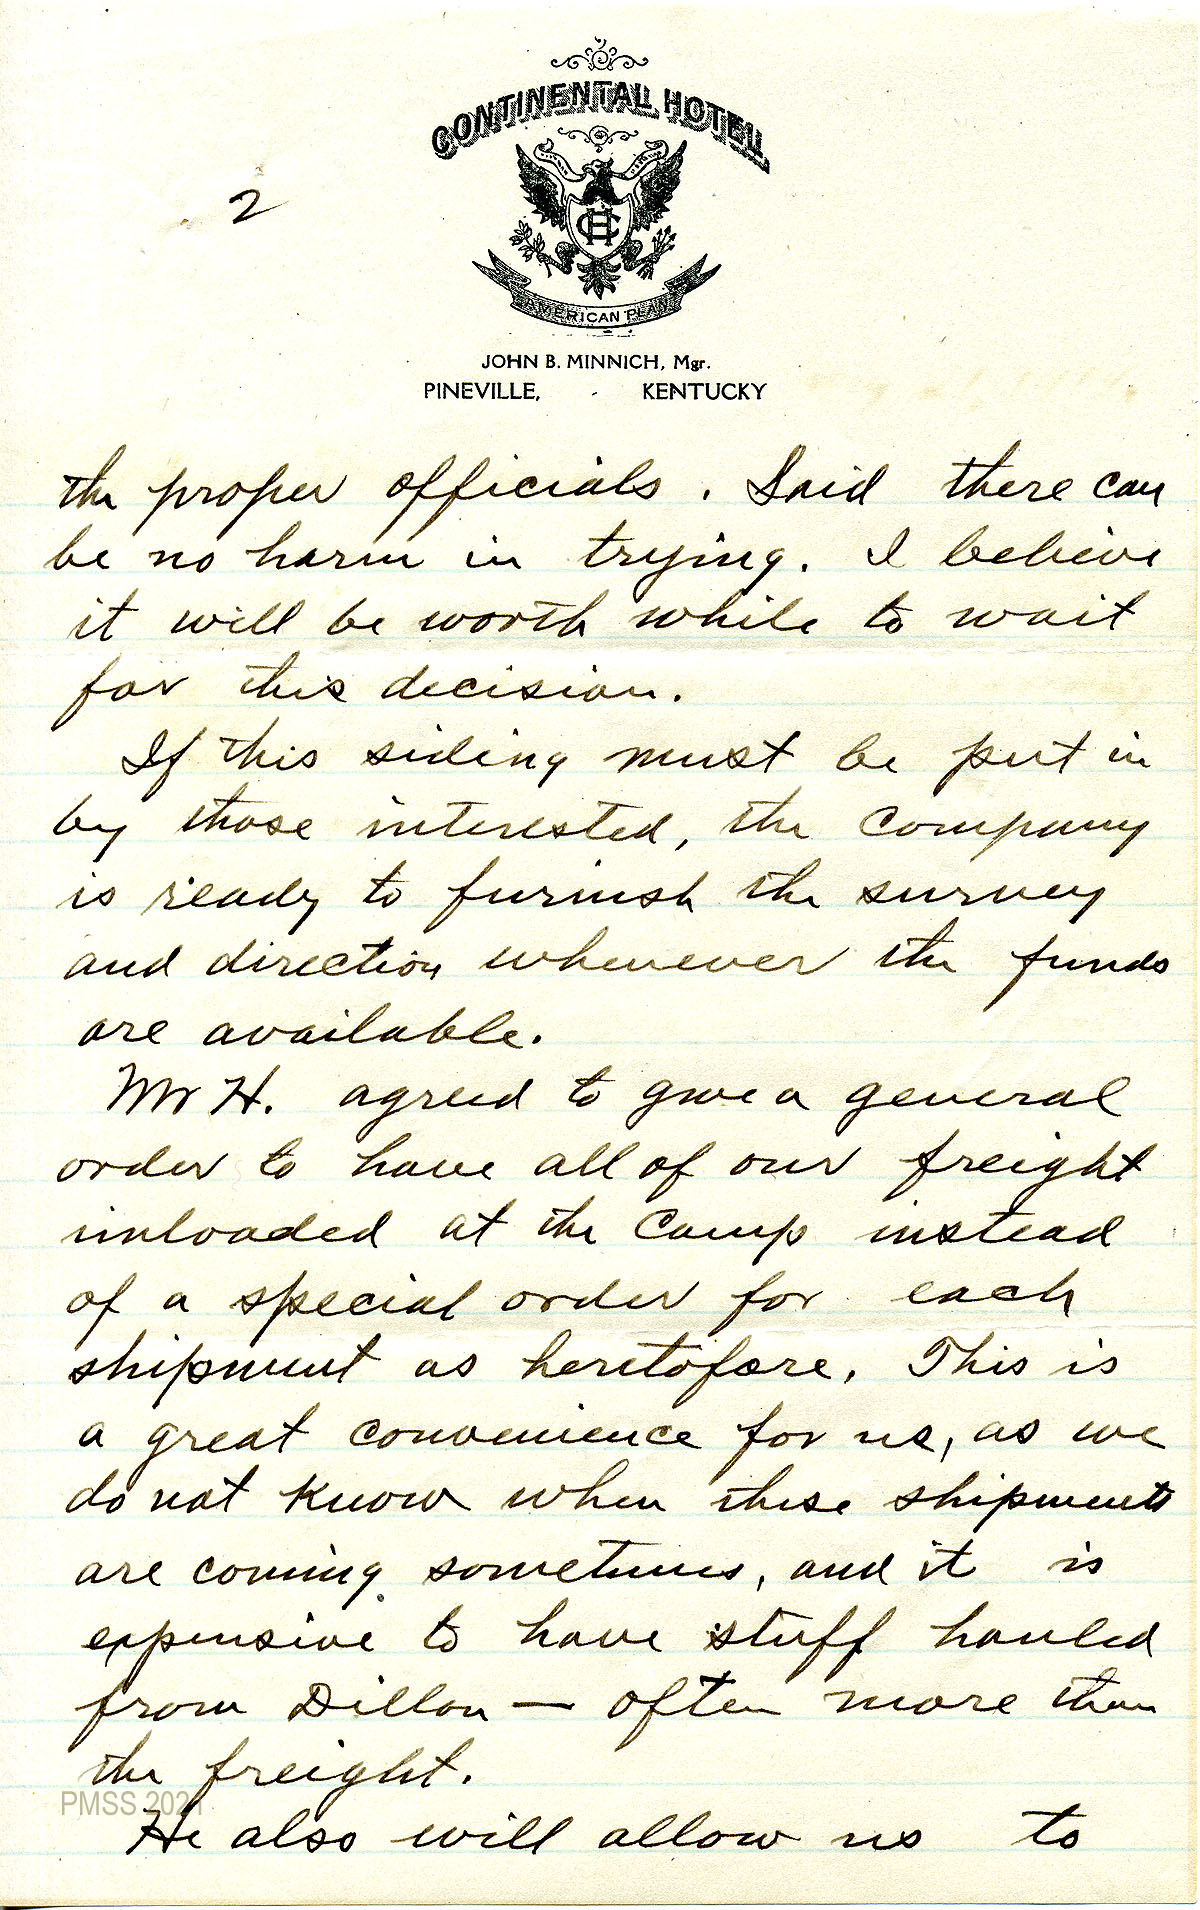 CONTINENTAL HOTEL
CH
AMERICAN PLAN
2
JOHN B. MINNICH, Mgr.
PINEVILLE, - KENTUCKY
the proper officials. Said there can
be no harm in trying. I believe
it will be worth while to wait
for this decision.
If this siding must be put in
by those interested, the company
is ready to furnish the survey
and direction whenever the funds
are available.
Mr H. agreed to give a general
order to have all of our freight
unloaded at the Camp instead
of a special order for each
shipment as heretofore. This is
a great convenience for us, as we
do not know when these shipments
are coming sometimes, and it is
expensive to have stuff hauled
from Dillon — often more than
the freight.
PMSS 2021
He also will allow us to